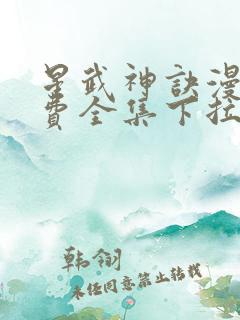 星武神訣漫
費全集下拉
韩翎
未经同意禁止转载